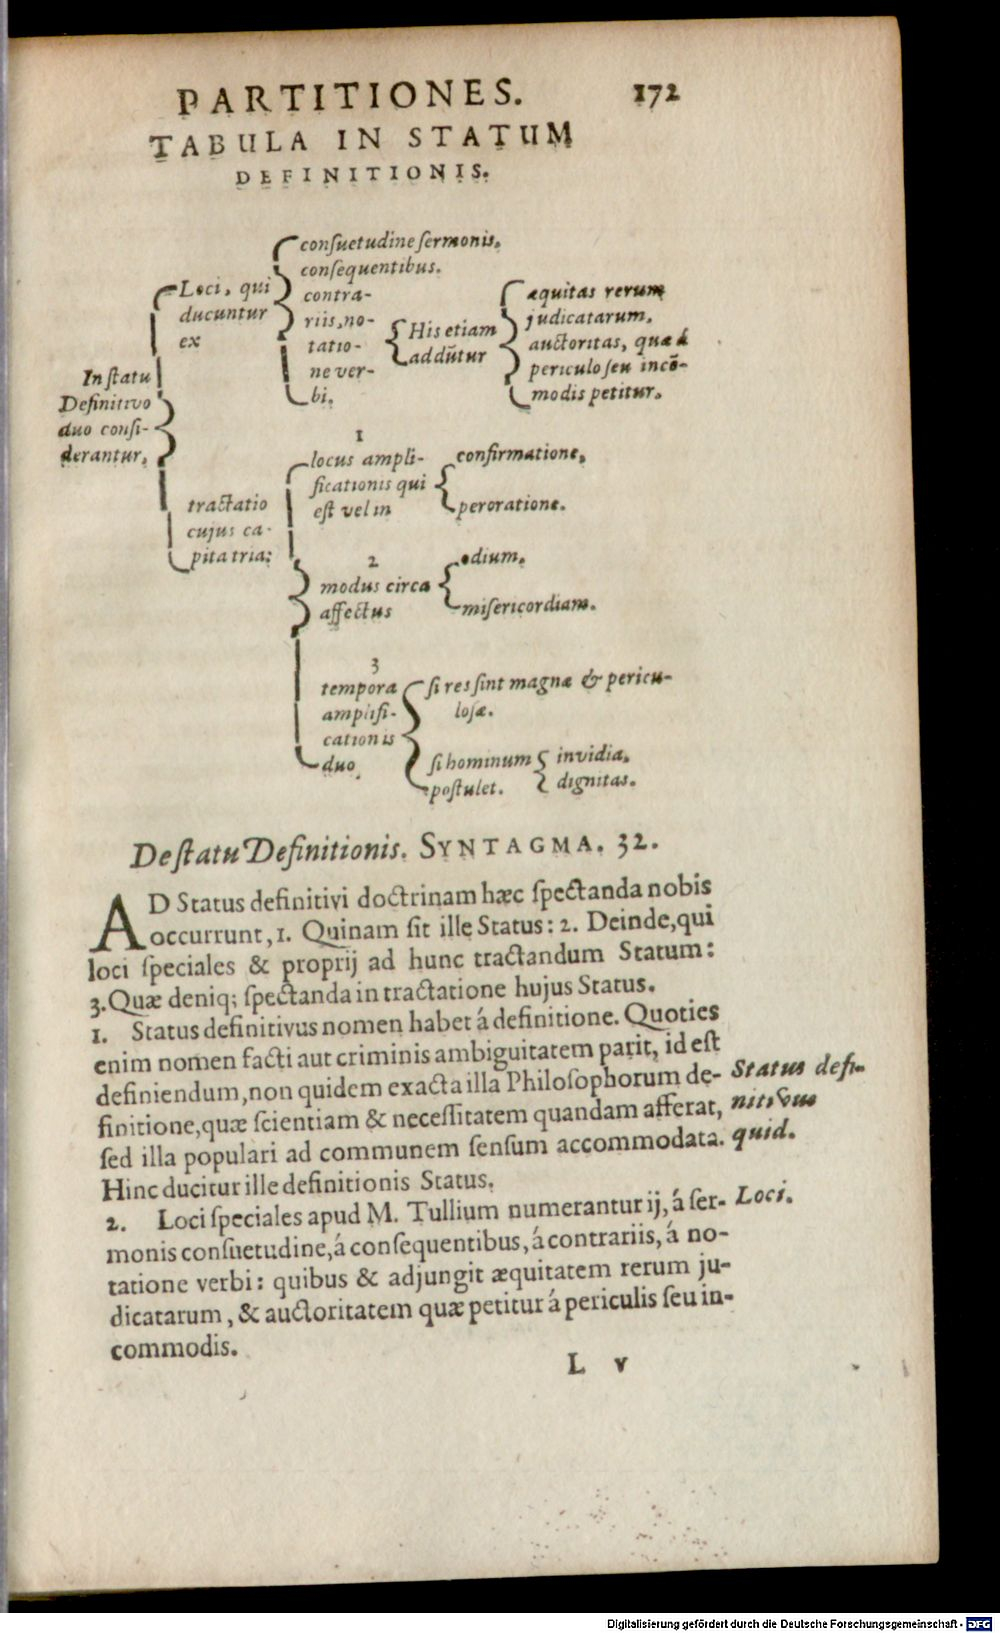 PARTITIONES. 172
TABULA IN STATUM
DEFINITIONIS.
In statu
Definitivo
duo consi-
derantur.
Loci, qui
ducuntur
ex
consuetudine sermonis.
consequentibus.
contra-
riis, no-
tatio-
ne ver-
bi.
His etiam
addūtur
æquitas rerum
judicatarum.
auctoritas, quæ á
periculo seu incō-
modis petitur.
tractatio
cujus ca-
pita tria:
1
locus ampli-
ficationis qui
est vel in
confirmatione.
peroratione.
2
modus circa
affectus
odium.
misericordiam.
3
tempora
amplifi-
cationis
duo
si res sint magnæ & pericu-
losæ.
si hominum
postulet.
invidia.
dignitas.
De statu Definitionis. SYNTAGMA. 32.
AD Status definitivi doctrinam hæc spectanda nobis
occurrunt, 1. Quinam sit ille Status: 2. Deinde, qui
loci speciales & proprij ad hunc tractandum Statum:
3. Quæ deniq; spectanda in tractatione hujus Status.
1. Status definitivus nomen habet á definitione. Quoties
enim nomen facti aut criminis ambiguitatem parit, id est
definiendum, non quidem exacta illa Philosophorum de-
finitione, quæ scientiam & necessitatem quandam afferat,
sed illa populari ad communem sensum accommodata.
Hinc ducitur ille definitionis Status.
Status defi-
nitivus
quid.
2. Loci speciales apud M. Tullium numerantur ij, á ser-
monis consuetudine, á consequentibus, á contrariis, á no-
tatione verbi: quibus & adjungit æquitatem rerum ju-
dicatarum, & auctoritatem quæ petitur á periculis seu in-
commodis.
Loci.
L v
Digitalisierung gefördert durch die Deutsche Forschungsgemeinschaft - DFG